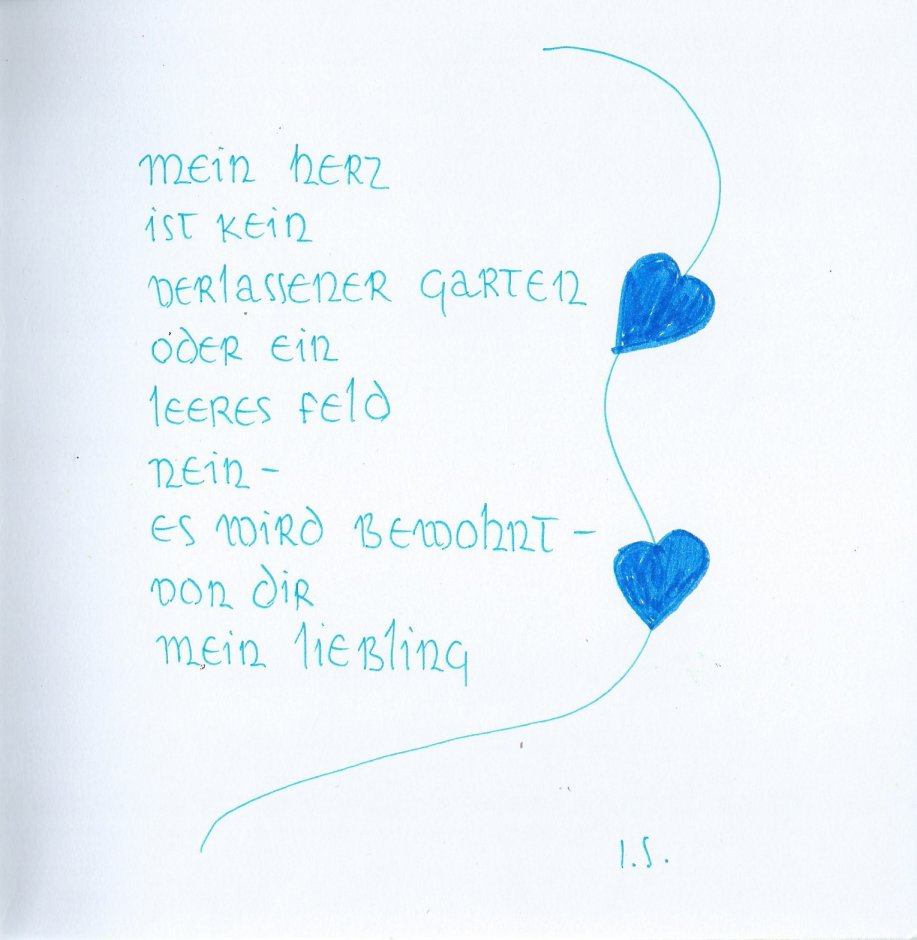 mein herz
ist kein
verlassener garten
oder ein
leeres feld
nein -
es wird bewohnt -
von dir
mein liebling
I.S.